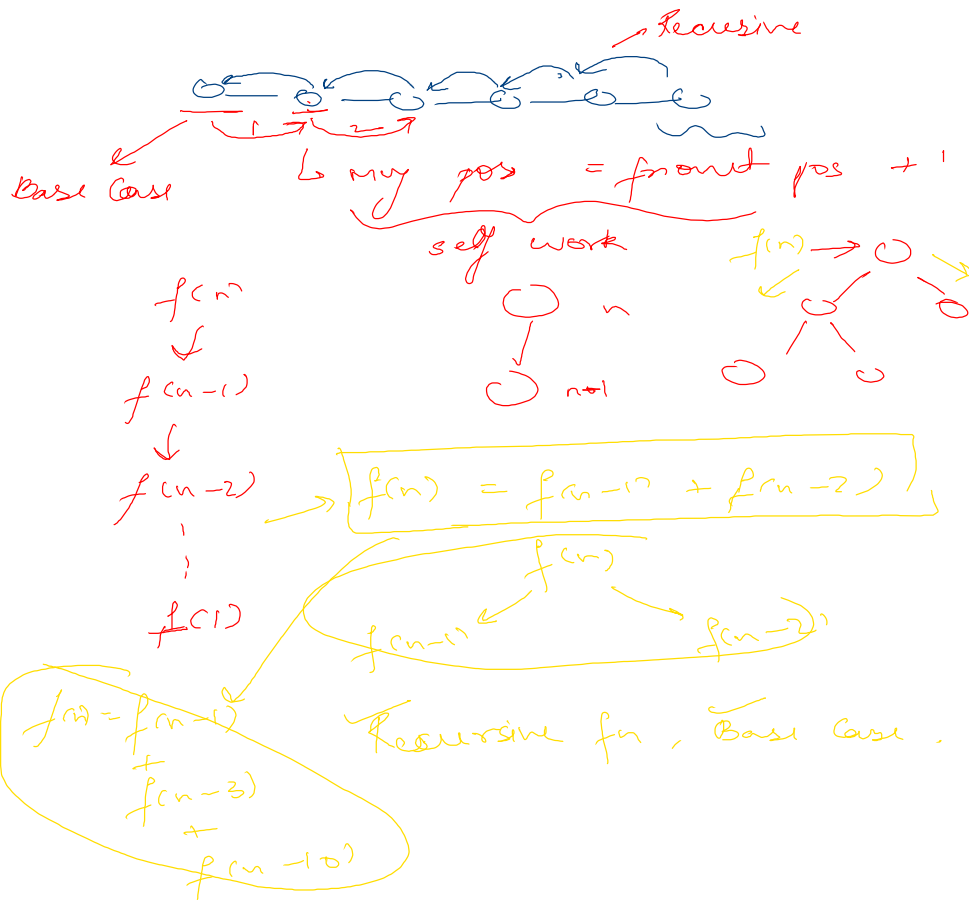 Recursive
1 2
Base Case
my pos = front pos + 1
self work
f(n)
f(n)
n
f(n-1)
n-1
f(n-2)
f(n) = f(n-1) + f(n-2)
f(n)
f(1)
f(n-1) f(n-2)
f(n) = f(n-1)
+
f(n-3)
+
f(n-10)
Recursive fn, Base Case.